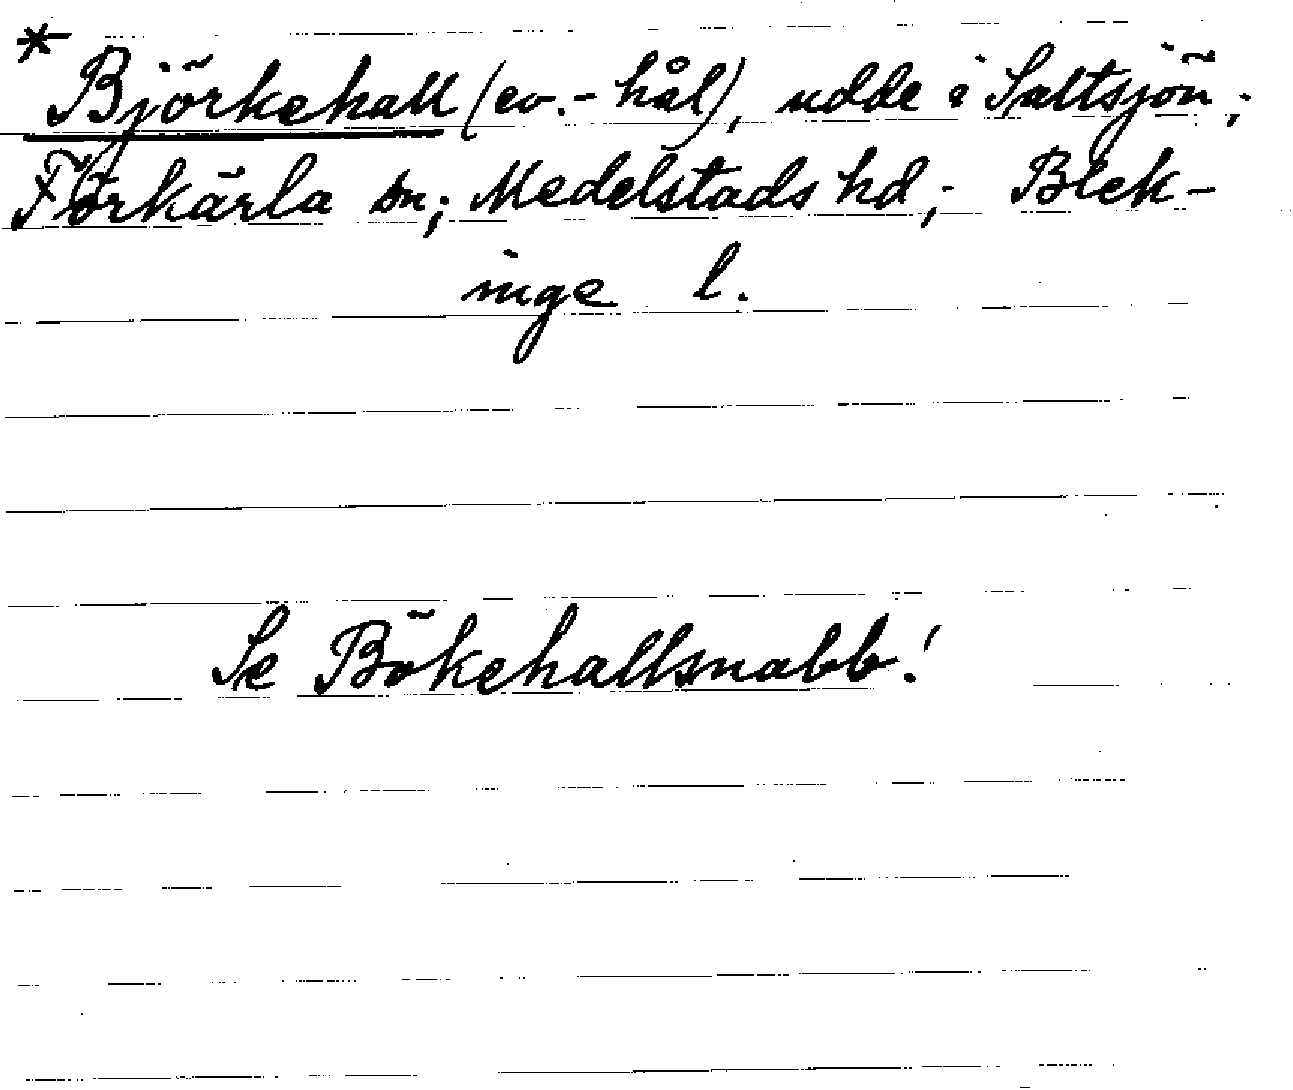 * Björkehall (ev.-hål), udde i Saltsjön;
Förkärla sn; Medelstads hd; Blek-
inge l.
Se Bökehallsnabb!